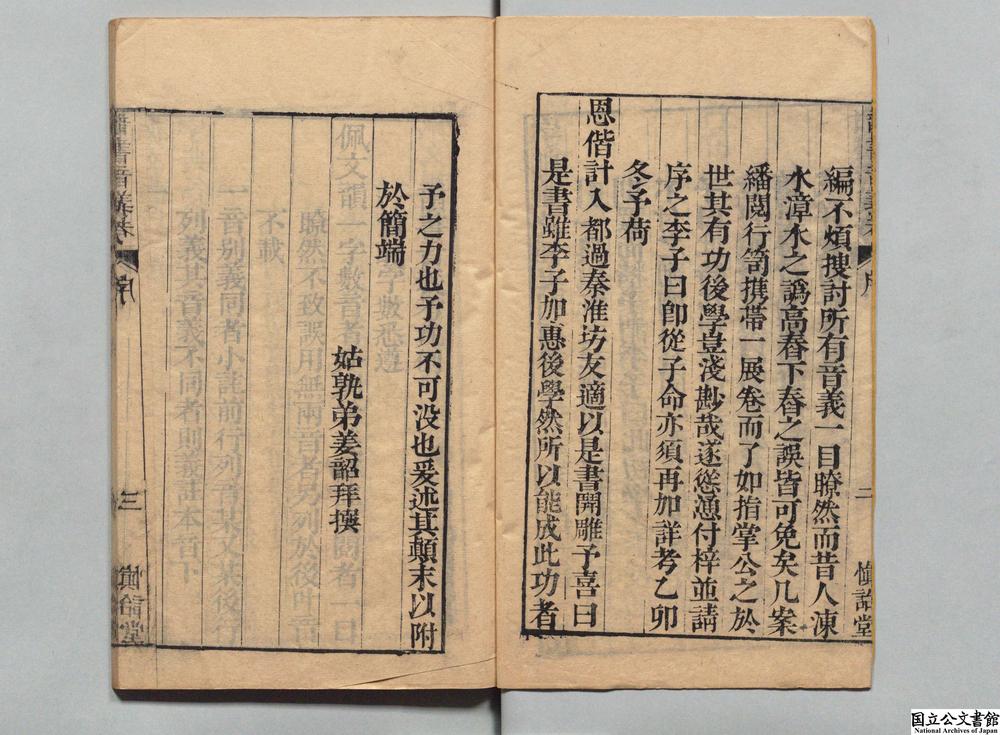 編不煩搜討所有音義一目瞭然而昔人凍
水漳水之譌高舂下舂之誤皆可免矣几案
繙閱行笥携帶一展卷而了如指掌公之於
世其有功後學豈淺尠哉遂慫漁付梓並請
序之李子曰卽從子命亦須再加詳考乙卯
冬予荷
恩偕計入都過秦淮坊友適以是書開雕予喜曰
是書雖李子加惠後學然所以能成此功者
二
慎詒堂
予之力也予功不可没也爰述其顛末以附
於簡端
姑孰弟姜韶拜撰
序
三
慎詒堂
国立公文書館
National Archives of Japan